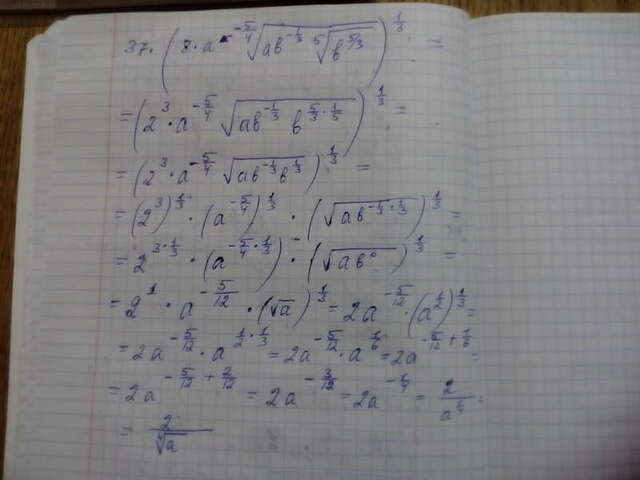 37. (8·a^(-5/4) √(ab^(-1/3) ⁵√(b^(5/3))))^(1/3) =
= (2^3·a^(-5/4) √(ab^(-1/3) b^(5/3·1/5)))^(1/3) =
= (2^3·a^(-5/4) √(ab^(-1/3)b^(1/3)))^(1/3) =
= (2^3)^(1/3)·(a^(-5/4))^(1/3)·(√(ab^(-1/3+1/3)))^(1/3) =
= 2^(3·1/3)·(a^(-5/4·1/3))·(√(ab^0))^(1/3) =
= 2^1·a^(-5/12)·(√a)^(1/3) = 2a^(-5/12)·(a^(1/2))^(1/3) =
= 2a^(-5/12)·a^(1/2·1/3) = 2a^(-5/12)·a^(1/6) = 2a^(-5/12+1/6) =
= 2a^(-5/12+2/12) = 2a^(-3/12) = 2a^(-1/4) = 2/a^(1/4) =
= 2/⁴√a